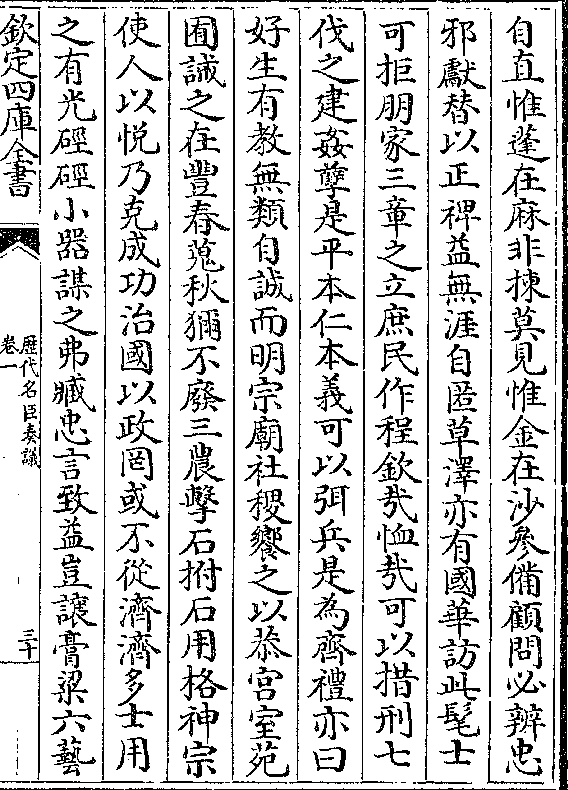 自直惟蓬在麻非揀莫見惟金在沙參備顧問必辨忠
邪獻替以正禆益無涯自匿草澤亦有國華訪此髦士
可拒朋家三章之立庶民作程欽㢤恤㢤可以措刑七
伐之建姦孽是平本仁本義可以弭兵是為齊禮亦曰
好生有教無類自誠而明宗廟社稷饗之以恭宫室苑
囿誡之在豐春蒐秋獮不廢三農擊石拊石用格神宗
使人以悦乃克成功治國以政罔或不從濟濟多士用
之有光硜硜小器謀之弗臧忠言致益豈讓膏粱六藝
欽定四庫全書
歷代名臣奏議
卷一
三十